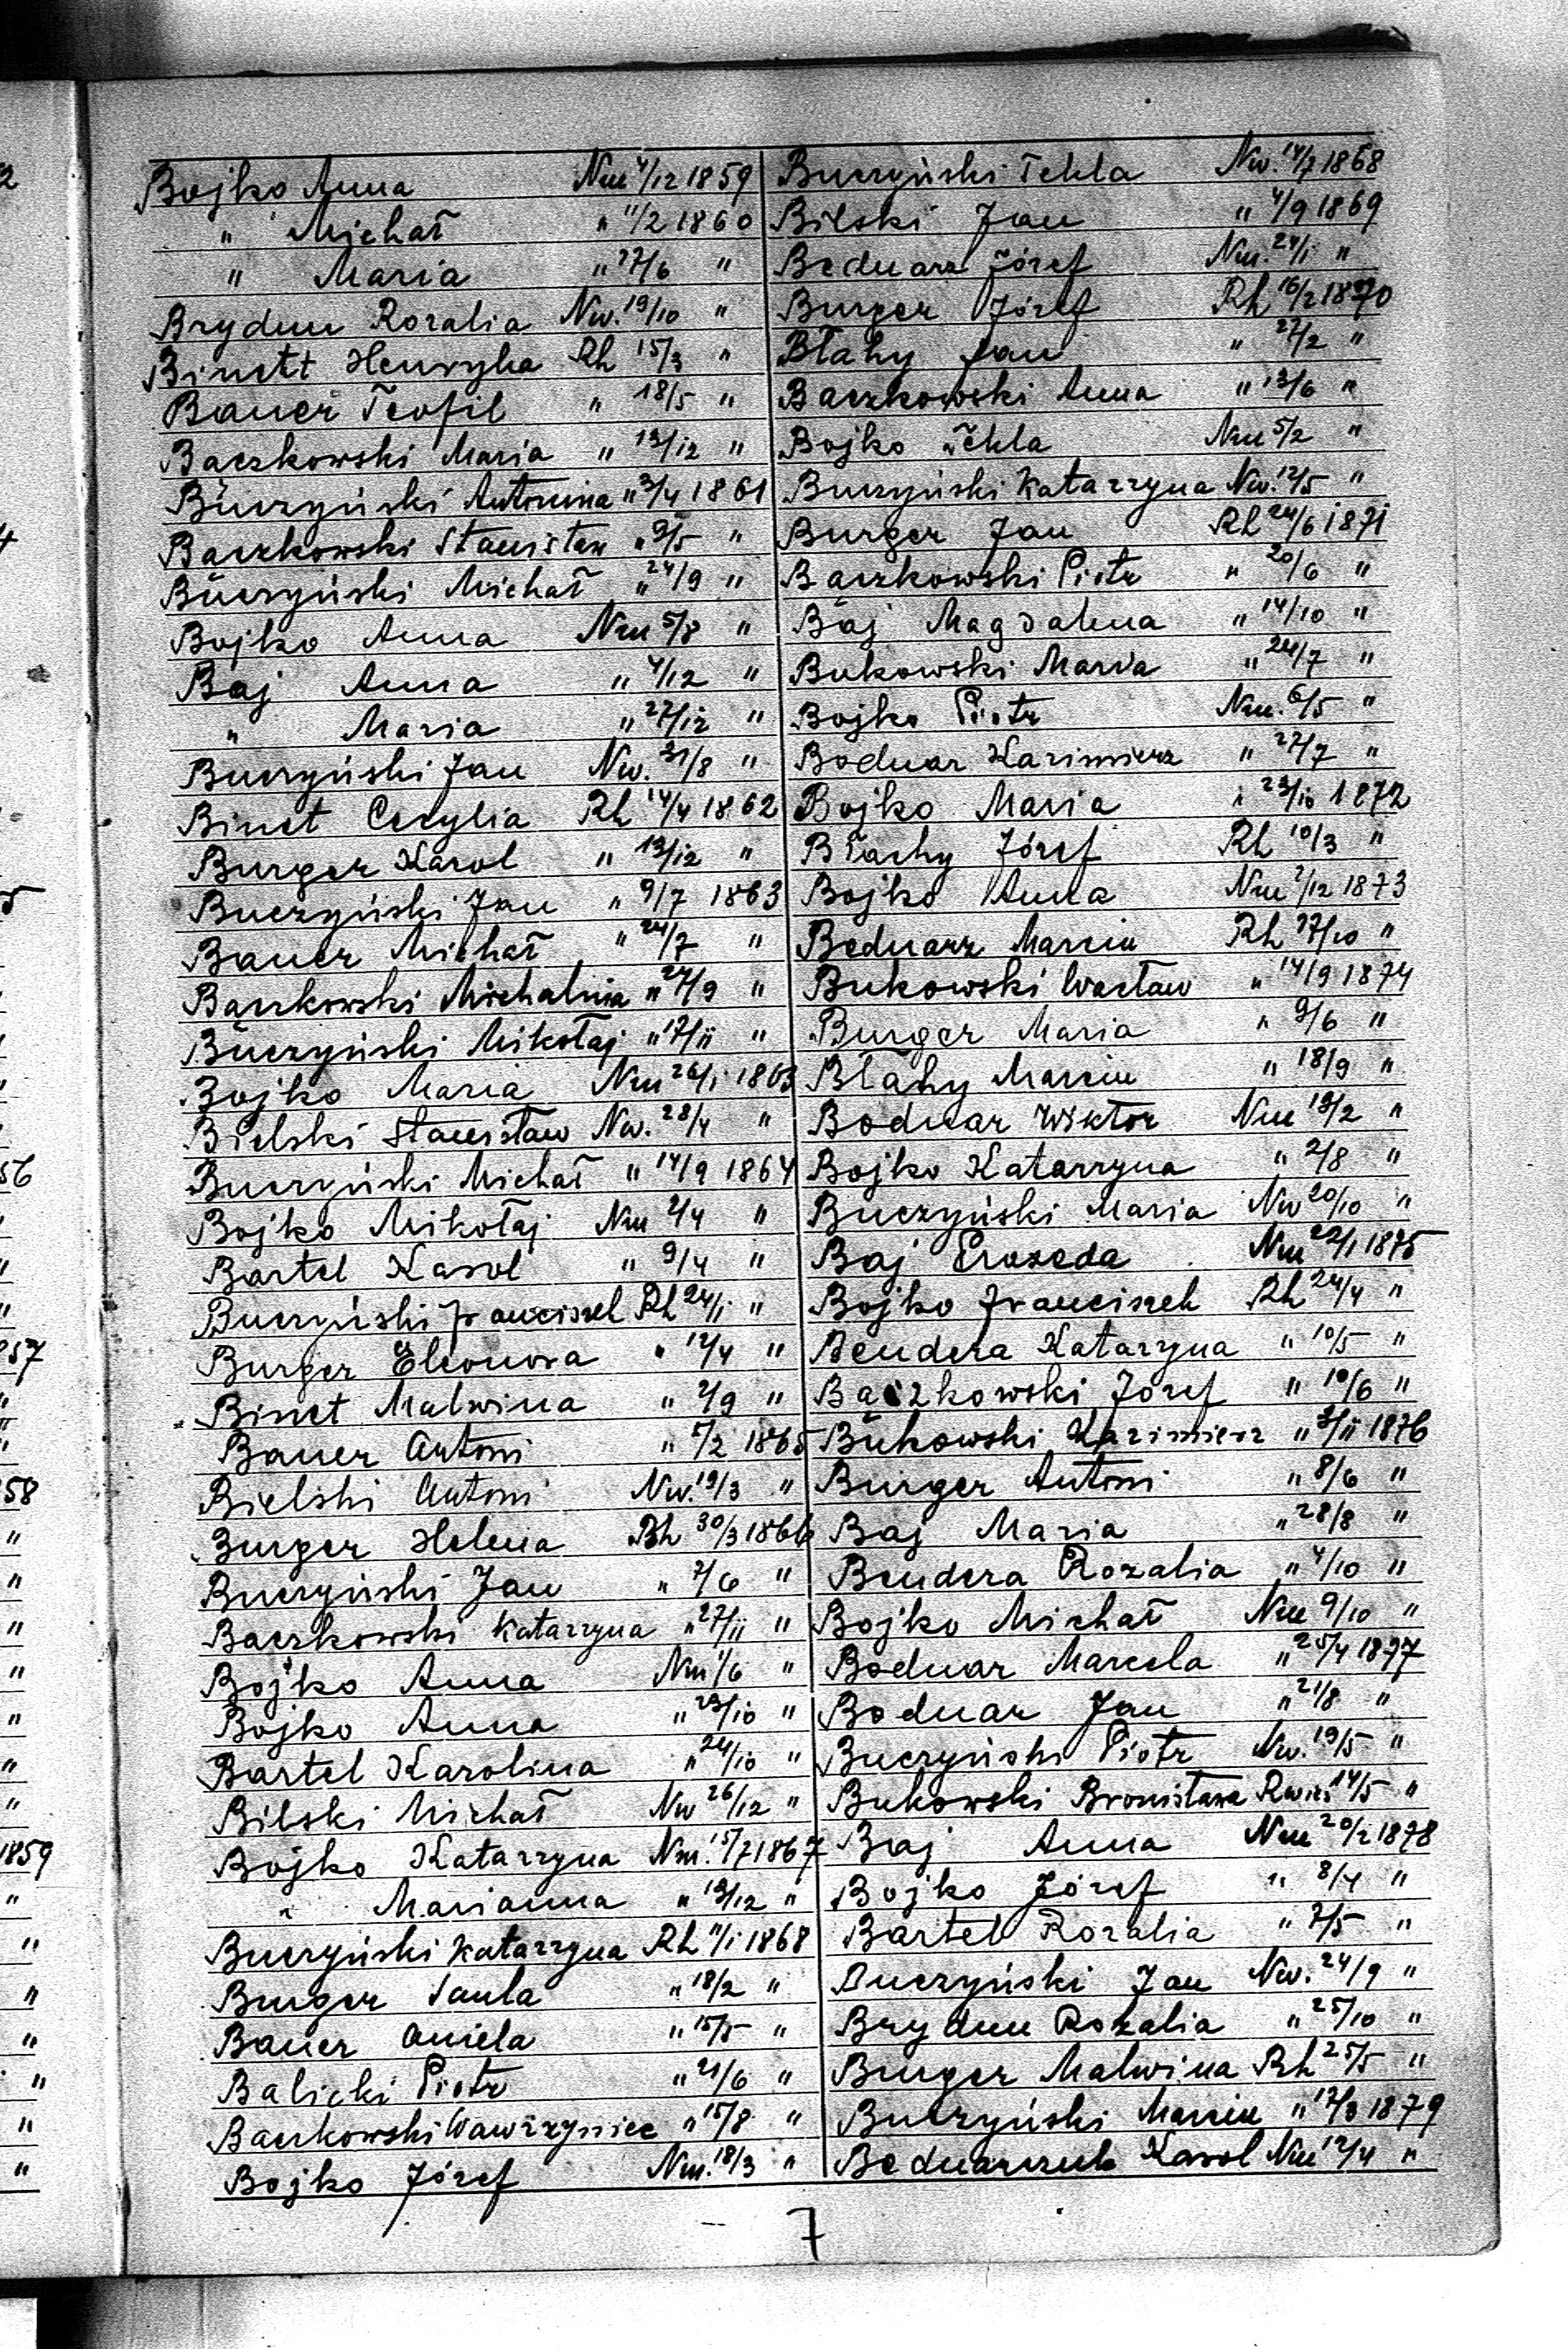 Bojko Anna Nm 4/12 1859
" Michał " 11/2 1860
" Maria " 27/6 "
Brydun Rozalia Nw. 19/10 "
Binett Henryka Rh 15/3 "
Bauer Teofil " 18/5 "
Baczkowski Maria " 13/12 "
Buczyński Antonina " 3/4 1861
Baczkowski Stanisław " 9/5 "
Buczyński Michał " 24/9 "
Bojko Anna Nm 5/8 "
Baj Anna " 4/12 "
" Maria " 27/12 "
Buczyński Jan Nw. 31/8 "
Binet Cecylia Rh 14/4 1862
Burger Karol " 13/12 "
Buczyński Jan " 9/7 1863
Bauer Michał " 24/7 "
Baczkowski Michalina " 24/9 "
Buczyński Mikołaj " 17/11 "
Bojko Maria Nm 26/1 1863
Bielski Stanisław Nw. 28/4 "
Buczyński Michał " 14/9 1864
Bojko Mikołaj Nm 2/4 "
Bartel Karol " 9/4 "
Buczyński Franciszek Rh 24/1 "
Burger Eleonora " 12/4 "
Binet Malwina " 2/9 "
Bauer Antoni " 5/2 1865
Bielski Antoni Nw. 19/3 "
Burger Helena Rh 30/3 1866
Buczyński Jan " 7/6 "
Baczkowski Katarzyna " 27/11 "
Bojko Anna Nm 1/6 "
Bojko Anna " 23/10 "
Bartel Karolina " 24/10 "
Bilski Michał Nw 26/12 "
Bojko Katarzyna Nm. 15/7 1867
" Marianna " 13/12 "
Buczyński Katarzyna Rh 11/1 1868
Burger Paula " 18/2 "
Bauer Aniela " 15/5 "
Balicki Piotr " 21/6 "
Baczkowski Wawrzyniec " 15/8 "
Bojko Józef Nm. 18/3 "
Buczyński Tekla Nw. 14/7 1868
Bilski Jan " 4/9 1869
Bednarz Józef Nm. 24/1 "
Burger Józef Rh 16/2 1870
Błahy Jan " 27/2 "
Baczkowski Anna " 13/6 "
Bojko Tekla Nm 5/2 "
Buczyński Katarzyna Nw. 12/5 "
Burger Jan Rh 24/6 1871
Baczkowski Piotr " 20/6 "
Baj Magdalena " 14/10 "
Bukowski Maria " 24/7 "
Bojko Piotr Nm. 6/5 "
Bodnar Kazimierz " 27/7 "
Bojko Maria " 23/10 1872
Błachy Józef Rh 10/3 "
Bojko Anna Nm 2/12 1873
Bednarz Marcin Rh 27/10 "
Bukowski Wacław " 14/9 1874
Burger Maria " 9/6 "
Błahy Marcin " 18/9 "
Bodnar Wiktor Nm 13/2 "
Bojko Katarzyna " 2/8 "
Buczyński Maria Nw 20/10 "
Baj Nm 22/1 1875
Bojko Franciszek Rh 24/4 "
Bendera Katarzyna " 10/5 "
Baczkowski Józef " 10/6 "
Bukowski Kazimierz " 3/11 1876
Burger Antoni " 8/6 "
Baj Maria " 28/8 "
Bendera Rozalia " 4/10 "
Bojko Michał Nm 9/10 "
Bodnar Marcela " 25/4 1877
Bodnar Jan " 21/8 "
Buczyński Piotr Nw. 19/5 "
Bukowski Bronisława 14/5 "
Baj Anna Nm 20/2 1878
Bojko Józef " 8/4 "
Bartel Rozalia " 7/5 "
Buczyński Jan Nw. 24/9 "
Brydun Rozalia " 25/10 "
Burger Malwina Rh 25/5 "
Buczyński Marcin " 12/3 1879
Bednarczuk Karol Nm 12/4 "
7
2
4
5
56
857
58
1859